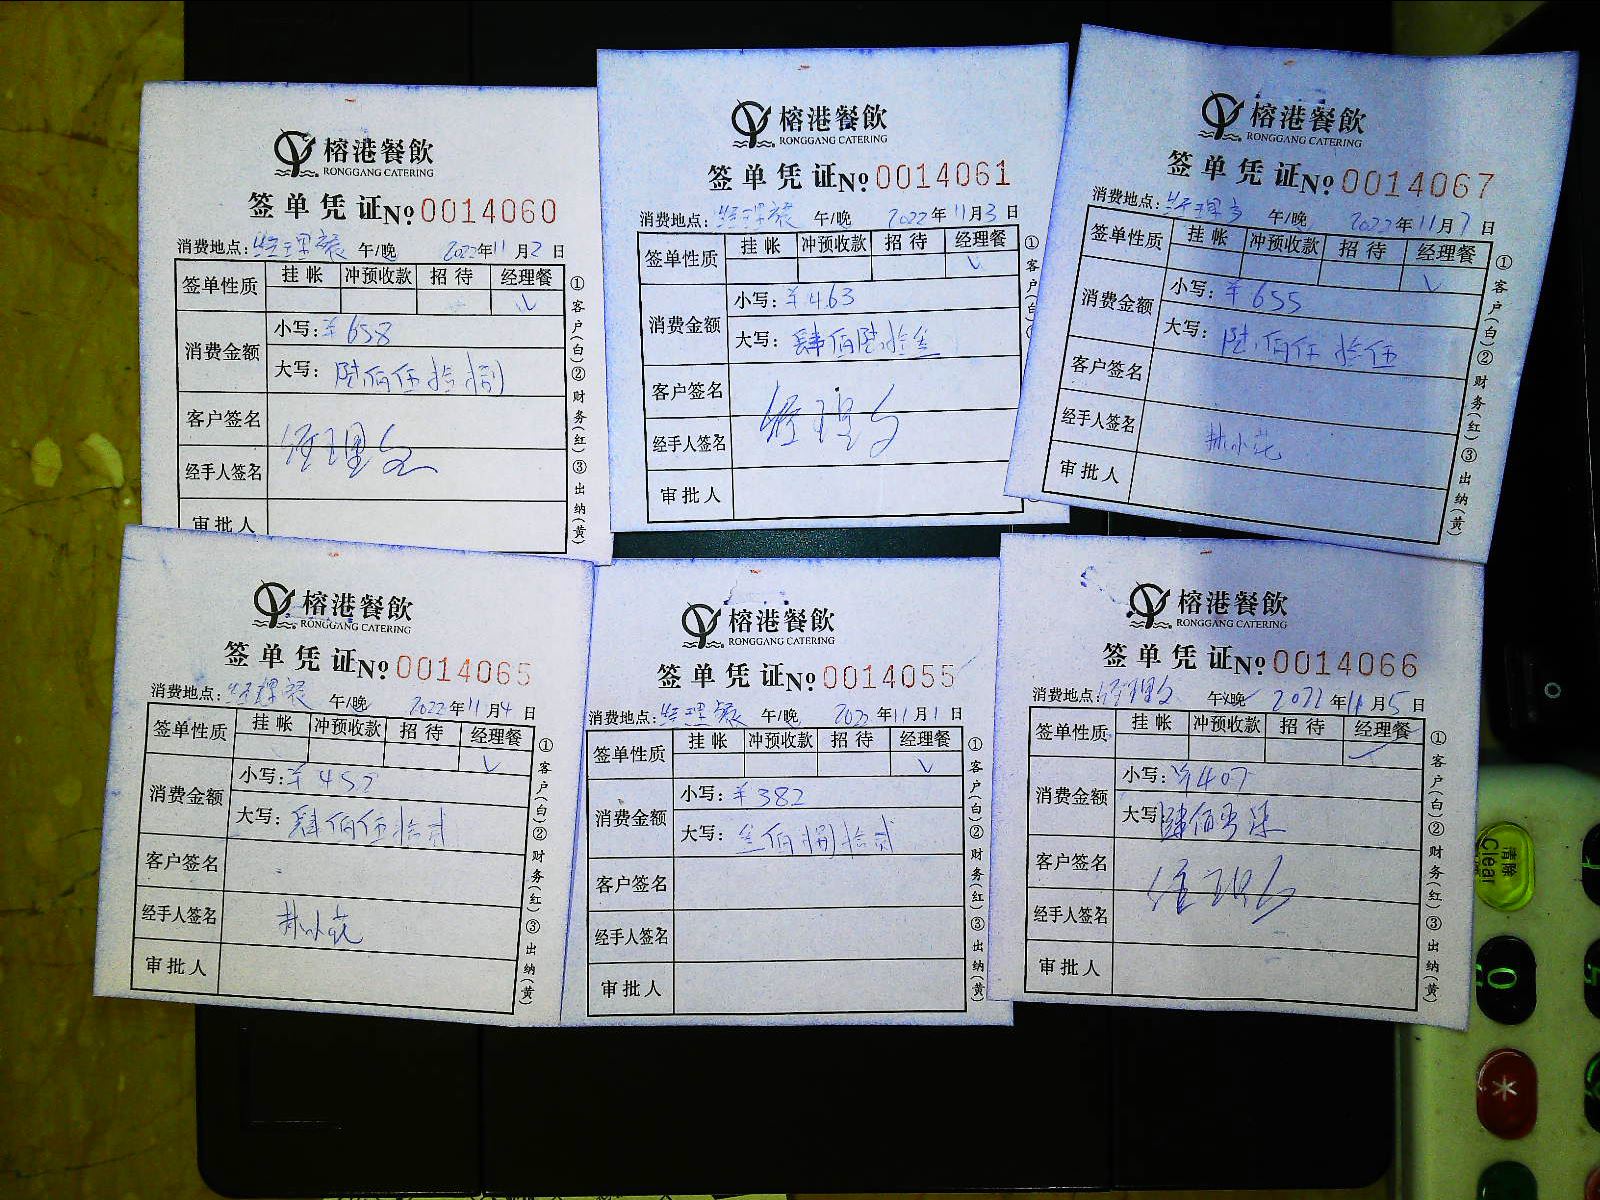 榕港餐飲
RONGGANG CATERING
签单凭证No 0014060
消费地点: 经理餐 午/晚 2022年11月2日
签单性质 挂帐 冲预收款 招待 经理餐
√
消费金额 小写:¥658
大写: 陆佰伍拾捌
客户签名
经手人签名
审批人
①客户(白)②财务(红)③出纳(黄)
榕港餐飲
RONGGANG CATERING
签单凭证No 0014061
消费地点: 经理餐 午/晚 2022年11月3日
签单性质 挂帐 冲预收款 招待 经理餐
√
消费金额 小写:¥463
大写: 肆佰陆拾叁
客户签名
经手人签名
审批人
①客户(白)
榕港餐飲
RONGGANG CATERING
签单凭证No 0014067
消费地点: 午/晚 2022年11月7日
签单性质 挂帐 冲预收款 招待 经理餐
√
消费金额 小写:¥655
大写: 陆佰伍拾伍
客户签名
经手人签名 林小花
审批人
①客户(白)②财务(红)③出纳(黄)
榕港餐飲
RONGGANG CATERING
签单凭证No 0014065
消费地点: 经理餐 午/晚 2022年11月4日
签单性质 挂帐 冲预收款 招待 经理餐
√
消费金额 小写:¥452
大写: 肆佰伍拾贰
客户签名
经手人签名 林小花
审批人
①客户(白)②财务(红)③出纳(黄)
榕港餐飲
RONGGANG CATERING
签单凭证No 0014055
消费地点: 经理餐 午/晚 2022年11月1日
签单性质 挂帐 冲预收款 招待 经理餐
√
消费金额 小写:¥382
大写: 叁佰捌拾贰
客户签名
经手人签名
审批人
①客户(白)②财务(红)③出纳(黄)
榕港餐飲
RONGGANG CATERING
签单凭证No 0014066
消费地点: 午/晚 2022年11月5日
签单性质 挂帐 冲预收款 招待 经理餐
消费金额 小写:¥407
大写: 肆佰零柒
客户签名
经手人签名
审批人
①客户(白)②财务(红)③出纳(黄)
清除
Clear
0
*